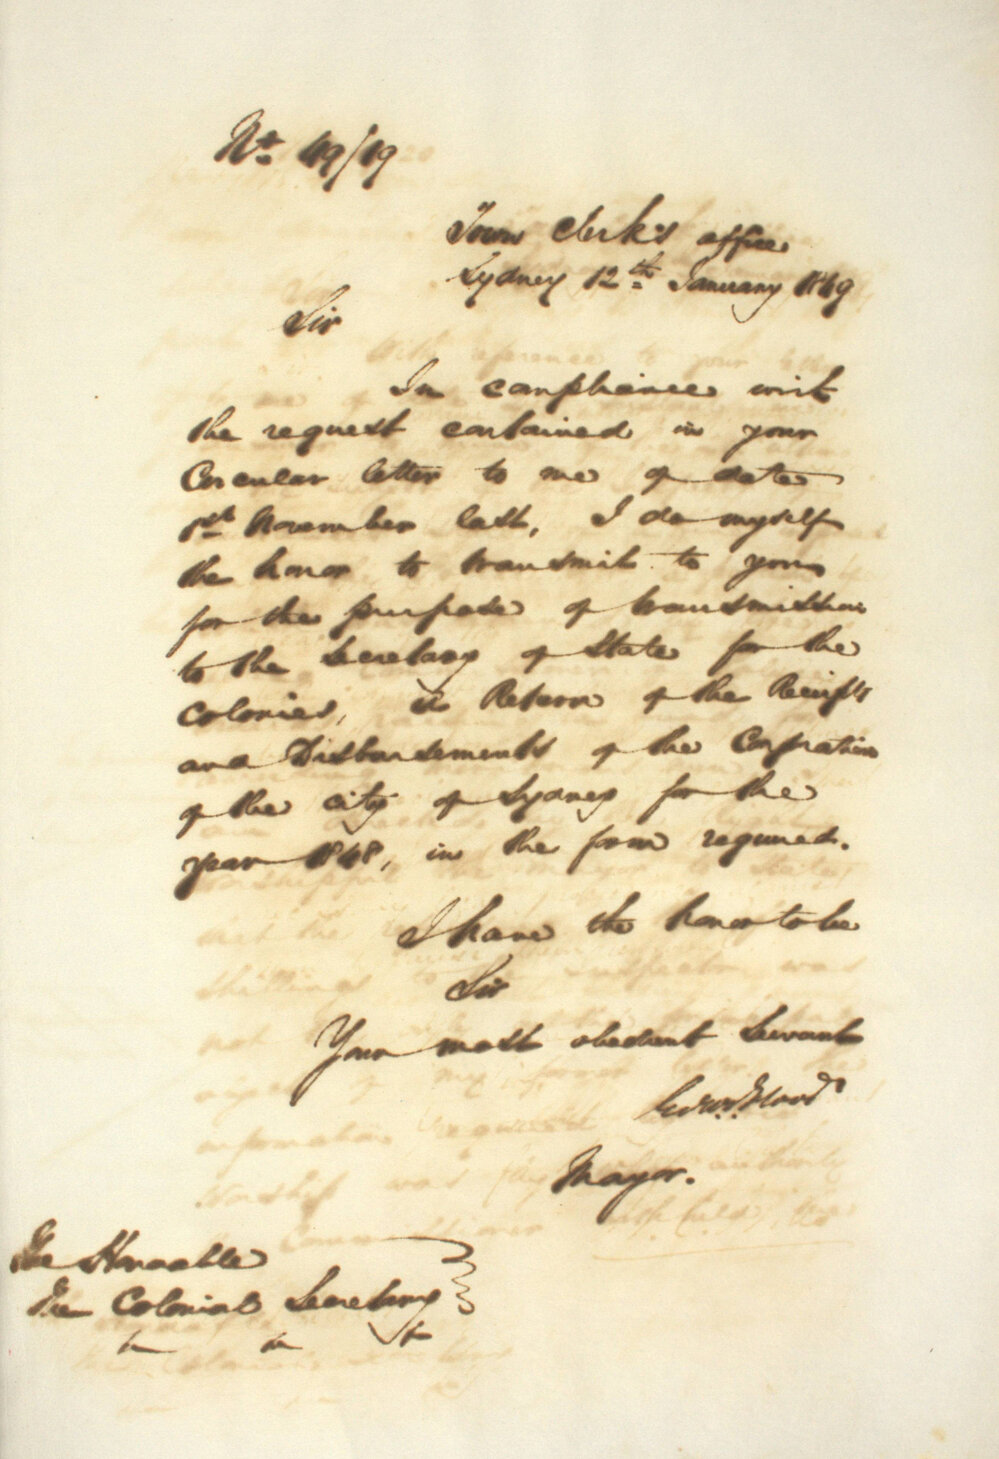 No. 49/19
Town Clerk's office
Sydney 12th January 1849
Sir
In compliance with
the request contained in your
Circular letter to me of date
1st November last, I do myself
the honor to transmit to you
for the purpose of transmission
to the Secretary of State for the
Colonies, a Return of the Receipts
and Disbursements of the Corporation
of the city of Sydney for the
year 1848, in the form required.
I have the honor to be
Sir
Your most obedient Servant
Edwd. Flood
Mayor.
The Honorable
The Colonial Secretary